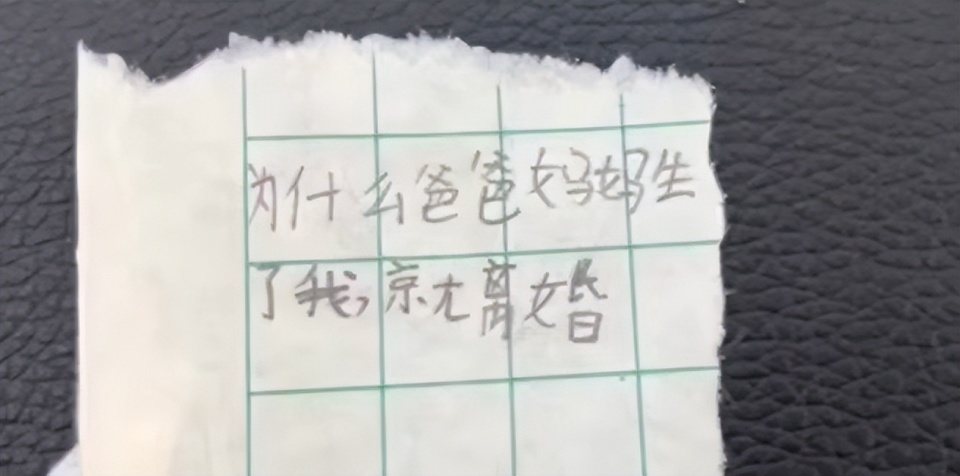 为什么爸爸妈妈生
了我,就离婚